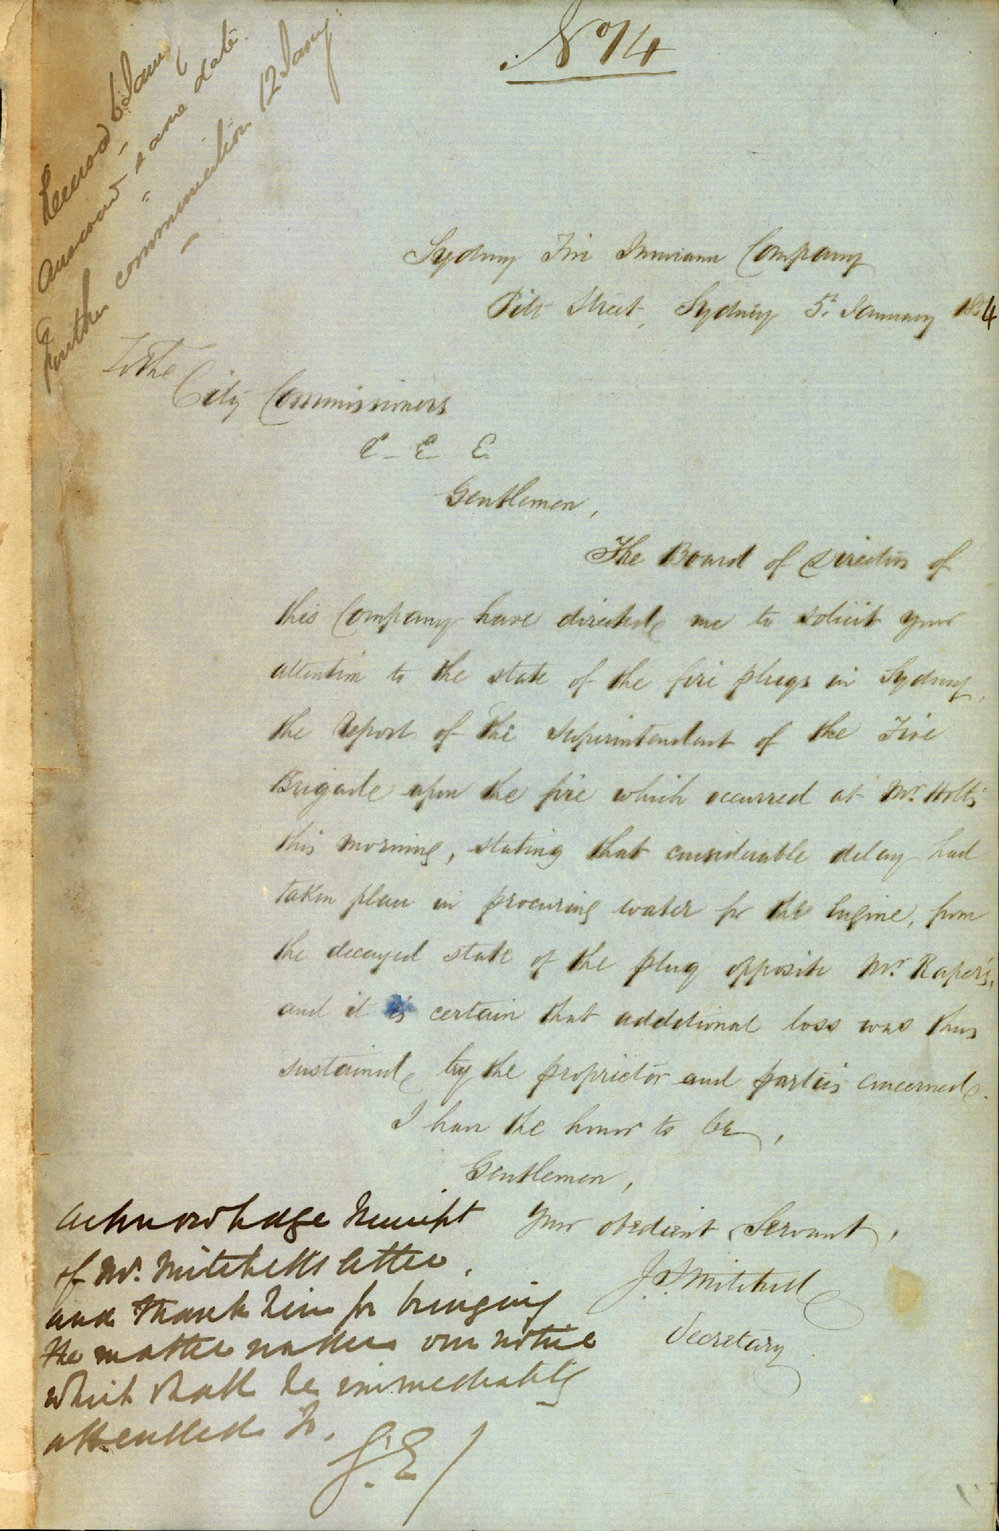 No 14
Received 6 Jany
Answered same date
Further communication 12 Jany
Sydney Fire Insurance Company
Pitt Street, Sydney 5th January 1854
To the
City Commissioners
&c &c &c
Gentlemen,
The Board of Directors of
this Company have directed me to solicit your
attention to the state of the fire plugs in Sydney,
the Report of the Superintendent of the Fire
Brigade upon the fire which occurred at Mr. Holt's
this morning, stating that considerable delay had
taken place in procuring water for the Engine, from
the decayed state of the plug opposite Mr. Raper's,
and it is certain that additional loss was thus
sustained by the proprietor and parties concerned.
I have the honor to be,
Gentlemen,
Your obedient Servant,
Mitchell
Secretary
Acknowledge Receipt
of Mr. Mitchell's letter,
and thank him for bringing
the matter under our notice
which shall be immediately
attended to.
G. E